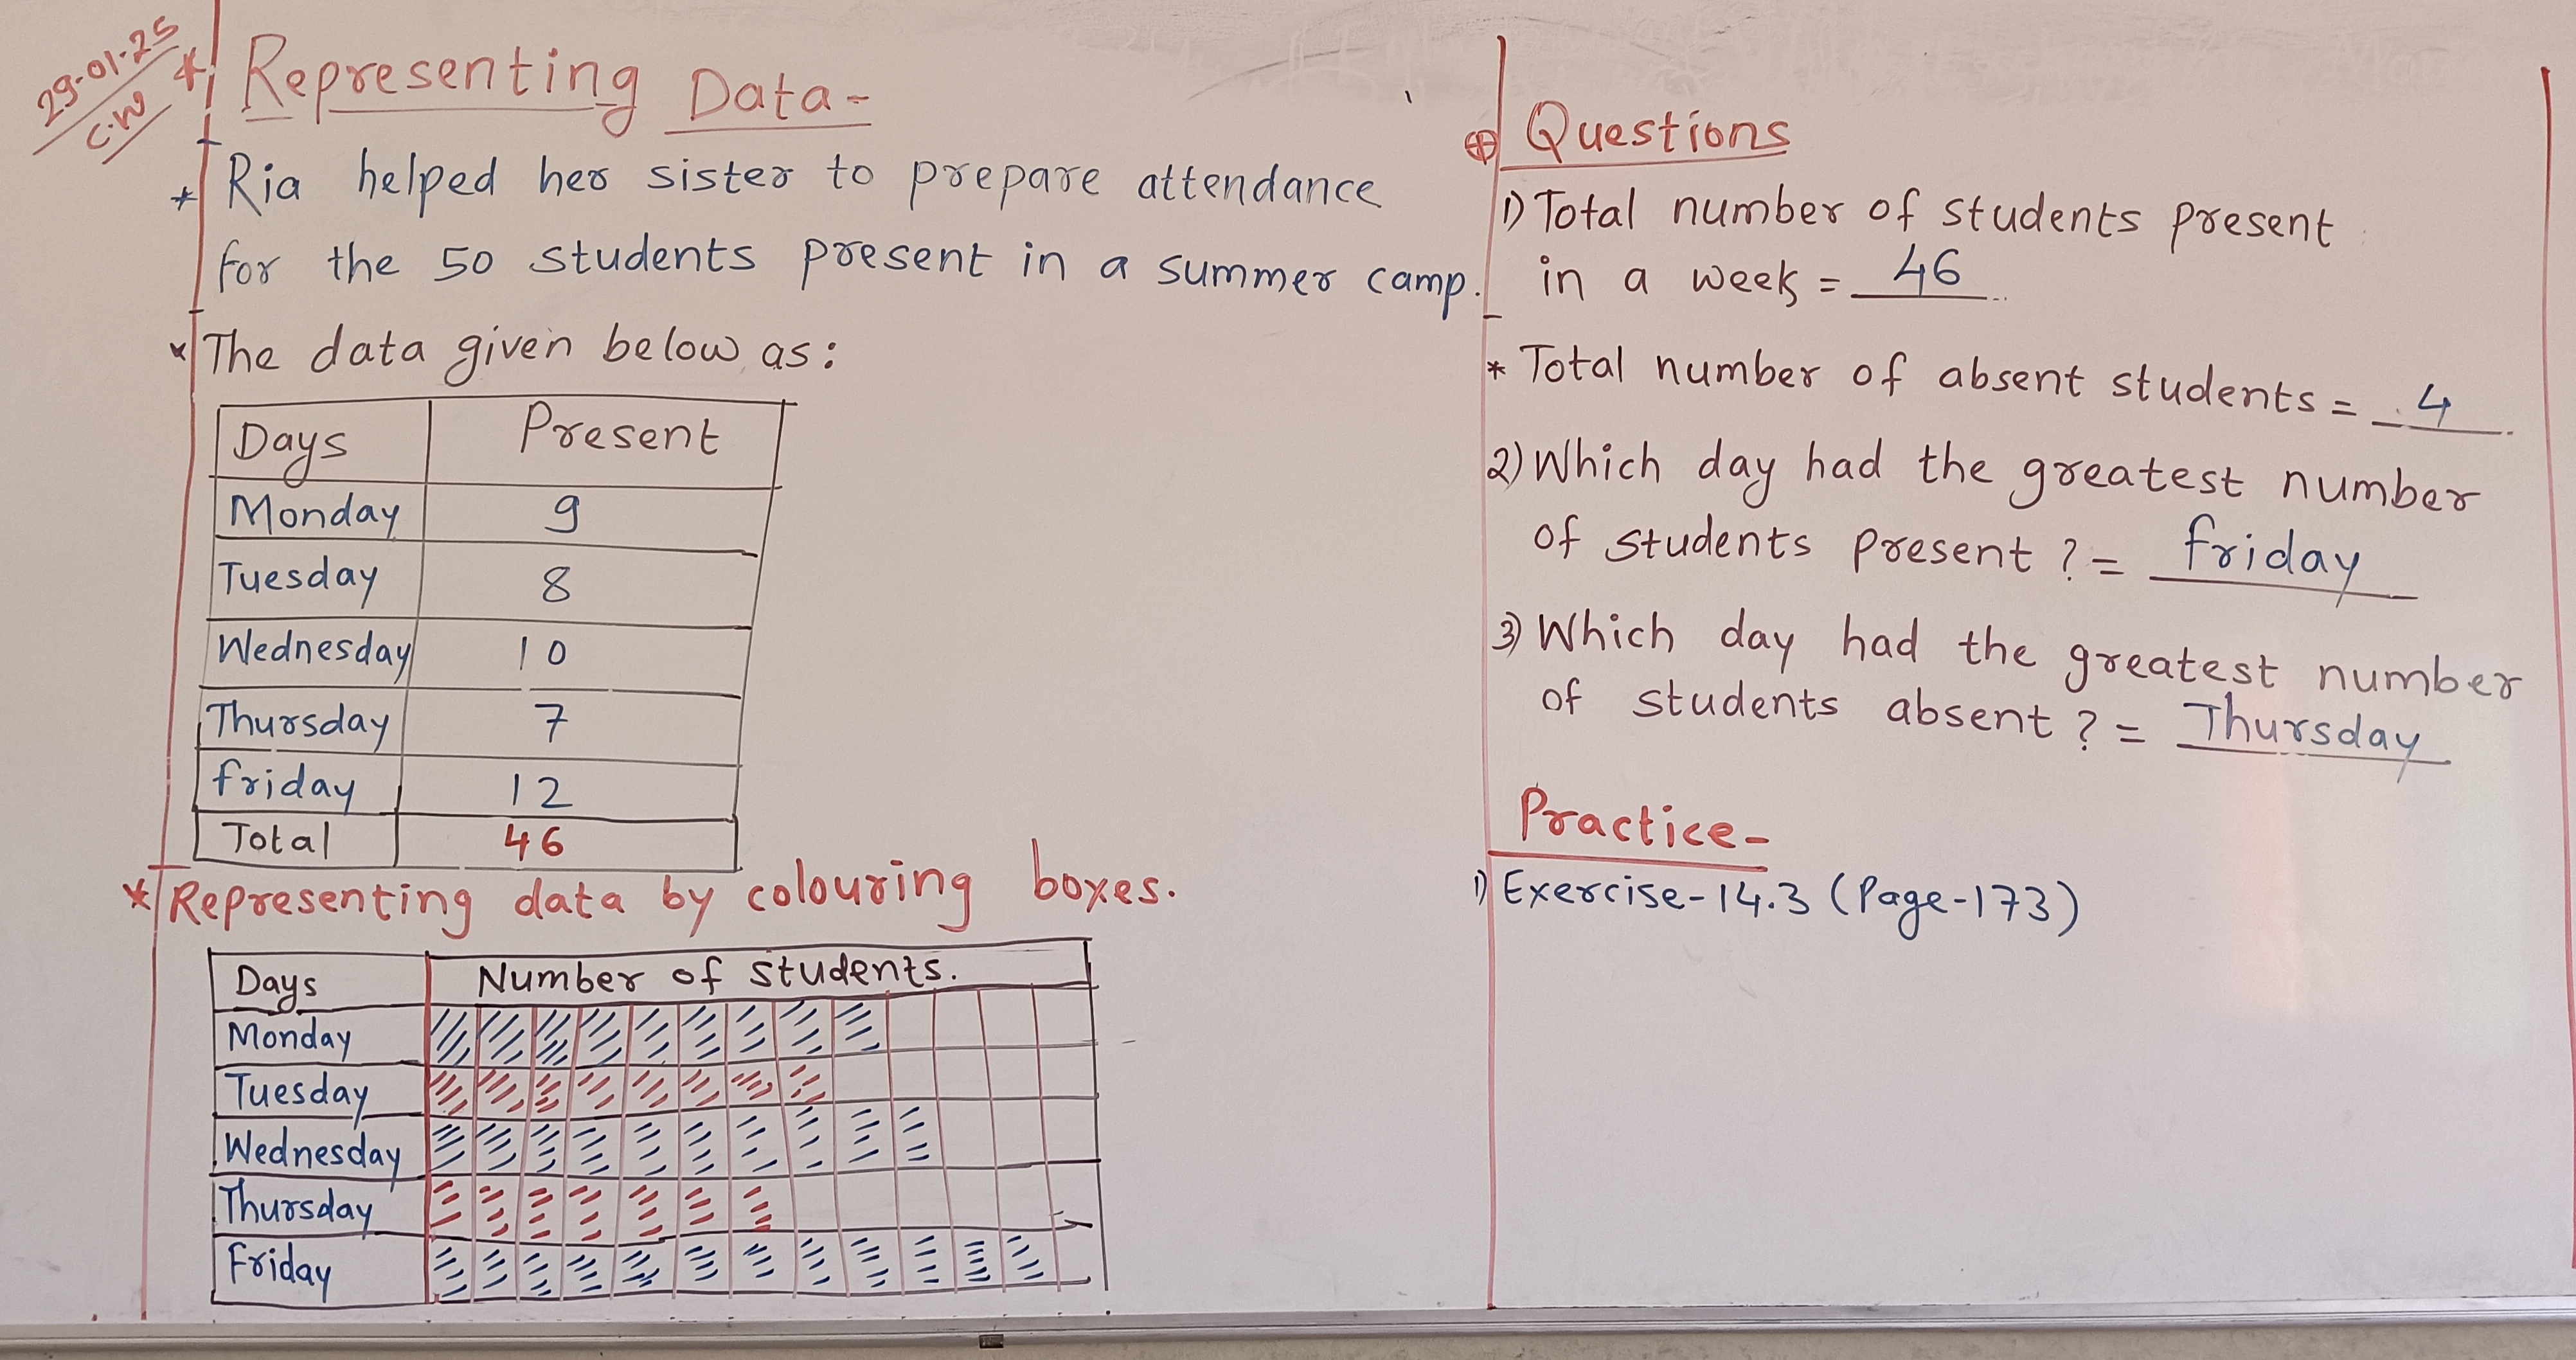 29-01-25
C.W
* Representing Data-
* Ria helped her sister to prepare attendance
for the 50 students present in a summer camp.
* The data given below as:
Days Present
Monday 9
Tuesday 8
Wednesday 10
Thursday 7
friday 12
Total 46
* Representing data by colouring boxes.
Days Number of students.
Monday
Tuesday
Wednesday
Thursday
Friday
⊕ Questions
1) Total number of students present
in a week = 46
* Total number of absent students = 4
2) Which day had the greatest number
of students present ? = friday
3) Which day had the greatest number
of students absent ? = Thursday
Practice-
1) Exercise-14.3 (Page-173)